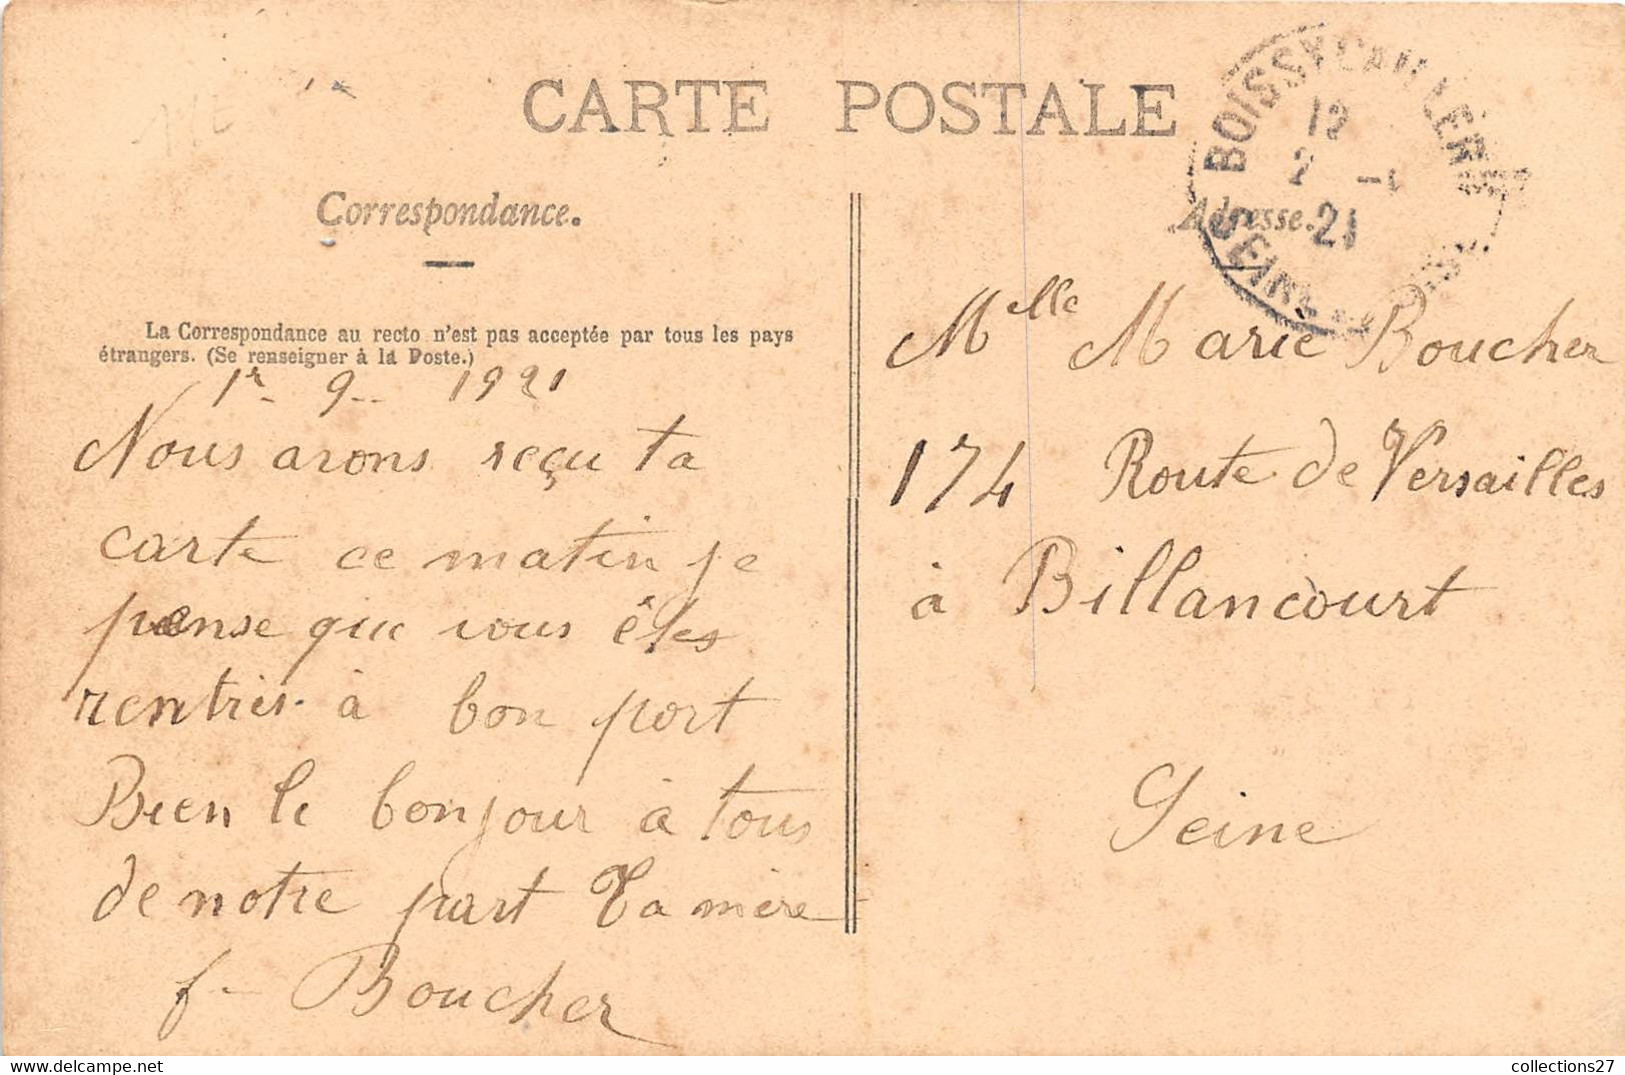 CARTE POSTALE
Correspondance.
La Correspondance au recto n'est pas acceptée par tous les pays
étrangers. (Se renseigner à la Poste.)
1r 9 1921
Nous avons reçu ta
carte ce matin je
pense que vous êtes
rentrés à bon port
Bien le bonjour à tous
de notre part Ta mère
f- Boucher
BOISSY
12
2
21
SEINE
Adresse.
Melle Marie Boucher
174 Route de Versailles
à Billancourt
Seine
collections27